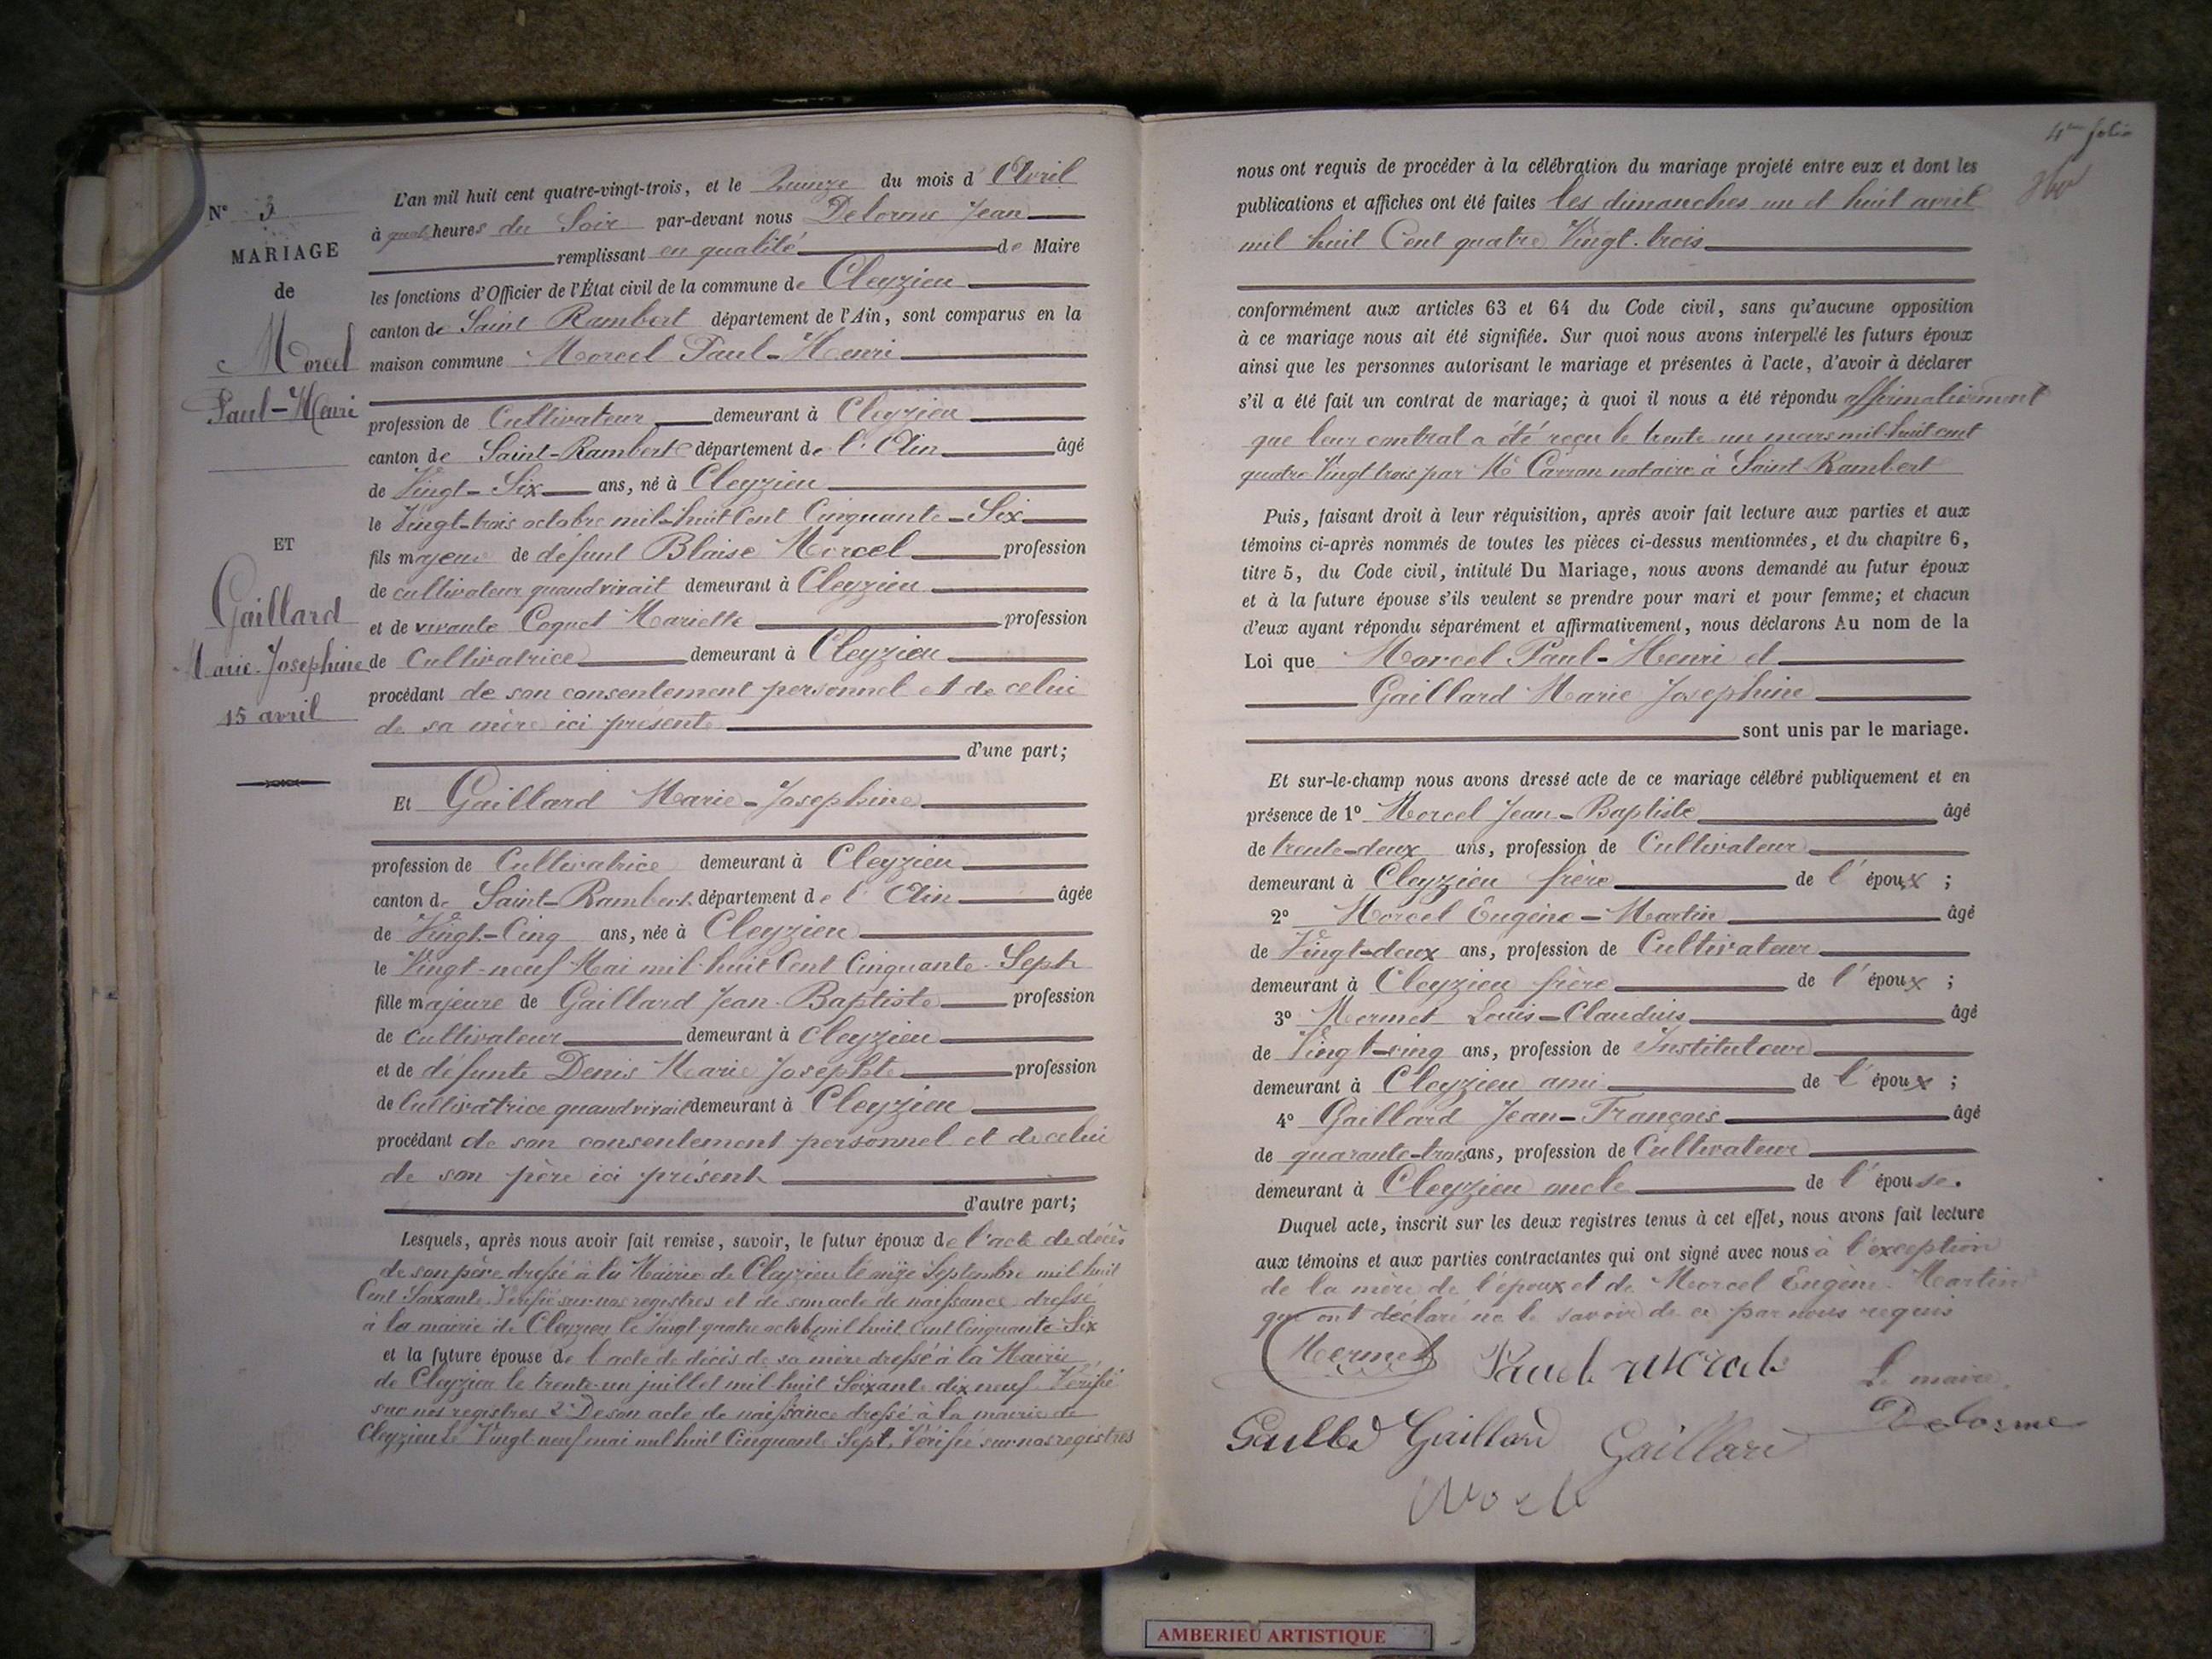 N° 3
MARIAGE
de
Morcel
Paul-Henri
ET
Gaillard
Marie-Josephine
15 avril
L'an mil huit cent quatre-vingt-trois, et le Quinze du mois d'Avril
à heures du Soir par-devant nous Delorme Jean
remplissant en qualité de Maire
les fonctions d'Officier de l'État civil de la commune de Cleyzieu
canton de Saint Rambert département de l'Ain, sont comparus en la
maison commune Morcel Paul-Henri
profession de Cultivateur demeurant à Cleyzieu
canton de Saint-Rambert département de l'Ain âgé
de Vingt-Six ans, né à Cleyzieu
le Vingt-trois octobre mil-huit Cent Cinquante-Six
fils majeur de défunt Blaise Morcel profession
de cultivateur quand vivait demeurant à Cleyzieu
et de vivante Coquet Mariette profession
de Cultivatrice demeurant à Cleyzieu
procédant de son consentement personnel et de celui
de sa mère ici présente
d'une part;
Et Gaillard Marie-Josephine
profession de Cultivatrice demeurant à Cleyzieu
canton de Saint-Rambert département de l'Ain âgée
de Vingt-Cinq ans, née à Cleyzieu
le Vingt-neuf Mai mil-huit Cent Cinquante-Sept
fille majeure de Gaillard Jean-Baptiste profession
de cultivateur demeurant à Cleyzieu
et de défunte Denis Marie Josephte profession
de Cultivatrice quand vivait demeurant à Cleyzieu
procédant de son consentement personnel et de celui
de son père ici présent
d'autre part;
Lesquels, après nous avoir fait remise, savoir, le futur époux de l'acte de décès
de son père dressé à la Mairie de Cleyzieu le onze Septembre mil huit
Cent Soixante. Vérifié sur nos registres et de son acte de naissance dressé
à la mairie de Cleyzieu le Vingt quatre octob mil huit Cent Cinquante-Six
et la future épouse de l'acte de décès de sa mère dressé à la Mairie
de Cleyzieu le trente-un juillet mil huit Soixante dix neuf. Vérifié
sur nos registres 2° De son acte de naissance dressé à la mairie de
Cleyzieu le Vingt neuf mai mil huit Cinquante Sept. Vérifié sur nos registres
4me folio
nous ont requis de procéder à la célébration du mariage projeté entre eux et dont les
publications et affiches ont été faites les dimanches un et huit avril
mil huit Cent quatre Vingt-trois
conformément aux articles 63 et 64 du Code civil, sans qu'aucune opposition
à ce mariage nous ait été signifiée. Sur quoi nous avons interpellé les futurs époux
ainsi que les personnes autorisant le mariage et présentes à l'acte, d'avoir à déclarer
s'il a été fait un contrat de mariage; à quoi il nous a été répondu affirmativement
que leur contrat a été reçu le trente un mars mil-huit cent
quatre Vingt trois par Me Carron notaire à Saint-Rambert
Puis, faisant droit à leur réquisition, après avoir fait lecture aux parties et aux
témoins ci-après nommés de toutes les pièces ci-dessus mentionnées, et du chapitre 6,
titre 5, du Code civil, intitulé Du Mariage, nous avons demandé au futur époux
et à la future épouse s'ils veulent se prendre pour mari et pour femme; et chacun
d'eux ayant répondu séparément et affirmativement, nous déclarons Au nom de la
Loi que Morcel Paul-Henri et
Gaillard Marie Josephine
sont unis par le mariage.
Et sur-le-champ nous avons dressé acte de ce mariage célébré publiquement et en
présence de 1° Morcel Jean-Baptiste âgé
de trente-deux ans, profession de Cultivateur
demeurant à Cleyzieu frère de l'époux;
2° Morcel Eugène-Martin âgé
de Vingt-deux ans, profession de Cultivateur
demeurant à Cleyzieu frère de l'époux;
3° Mermet Louis-Claudius âgé
de Vingt-cinq ans, profession de Instituteur
demeurant à Cleyzieu ami de l'époux;
4° Gaillard Jean-François âgé
de quarante-trois ans, profession de Cultivateur
demeurant à Cleyzieu oncle de l'épouse.
Duquel acte, inscrit sur les deux registres tenus à cet effet, nous avons fait lecture
aux témoins et aux parties contractantes qui ont signé avec nous à l'exception
de la mère de l'époux et de Morcel Eugène-Martin
qui ont déclaré ne le savoir de ce par nous requis
Mermet Paul morcel Le maire,
Gaillard Gaillard Delorme
AMBERIEU ARTISTIQUE